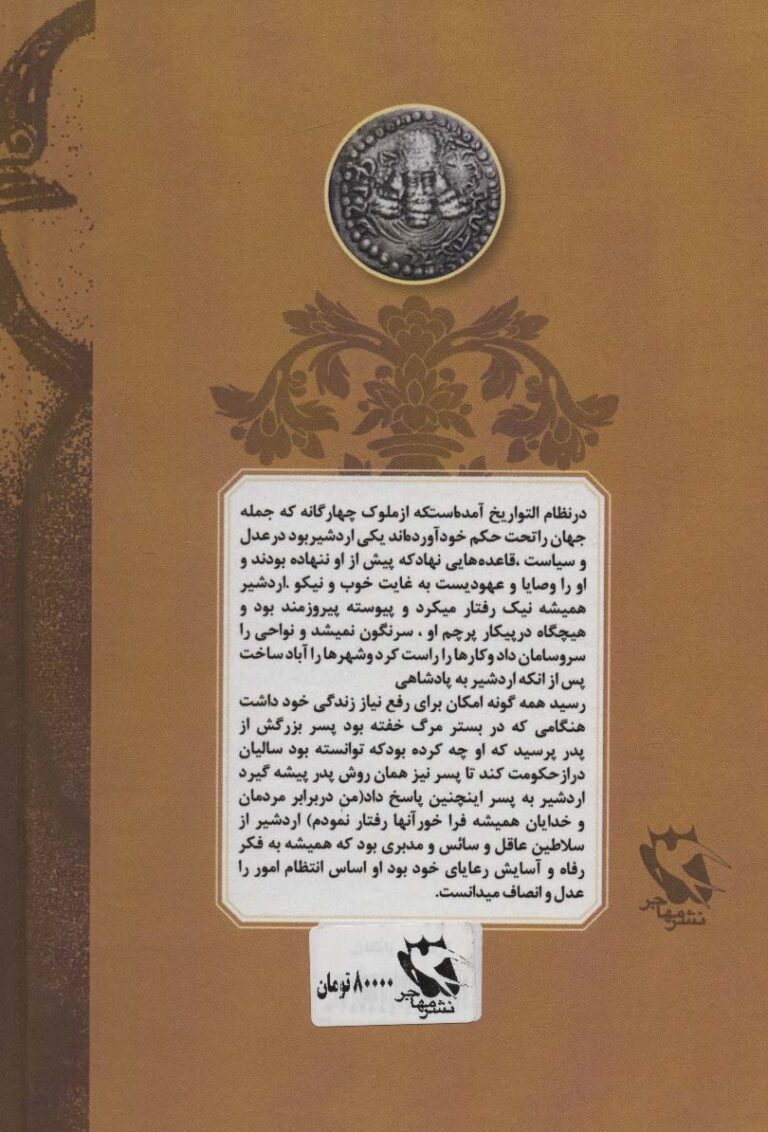 درنظام التواریخ آمده‌استکه ازملوک چهارگانه که جمله
جهان راتحت حکم خودآورده‌اند یکی اردشیربود درعدل
و سیاست ،قاعده‌هایی نهادکه پیش از او ننهاده بودند و
او را وصایا و عهودیست به غایت خوب و نیکو .اردشیر
همیشه نیک رفتار میکرد و پیوسته پیروزمند بود و
هیچگاه درپیکار پرچم او ، سرنگون نمیشد و نواحی را
سروسامان داد وکارها را راست کرد وشهرها را آباد ساخت
پس از انکه اردشیر به پادشاهی
رسید همه گونه امکان برای رفع نیاز زندگی خود داشت
هنگامی که در بستر مرگ خفته بود پسر بزرگش از
پدر پرسید که او چه کرده بودکه توانسته بود سالیان
درازحکومت کند تا پسر نیز همان روش پدر پیشه گیرد
اردشیر به پسر اینچنین پاسخ داد(من دربرابر مردمان
و خدایان همیشه فرا خورآنها رفتار نمودم) اردشیر از
سلاطین عاقل و سائس و مدبری بود که همیشه به فکر
رفاه و آسایش رعایای خود بود او اساس انتظام امور را
عدل و انصاف میدانست.
نشر مهاجر
نشر مهاجر
۸۰۰۰۰ تومان